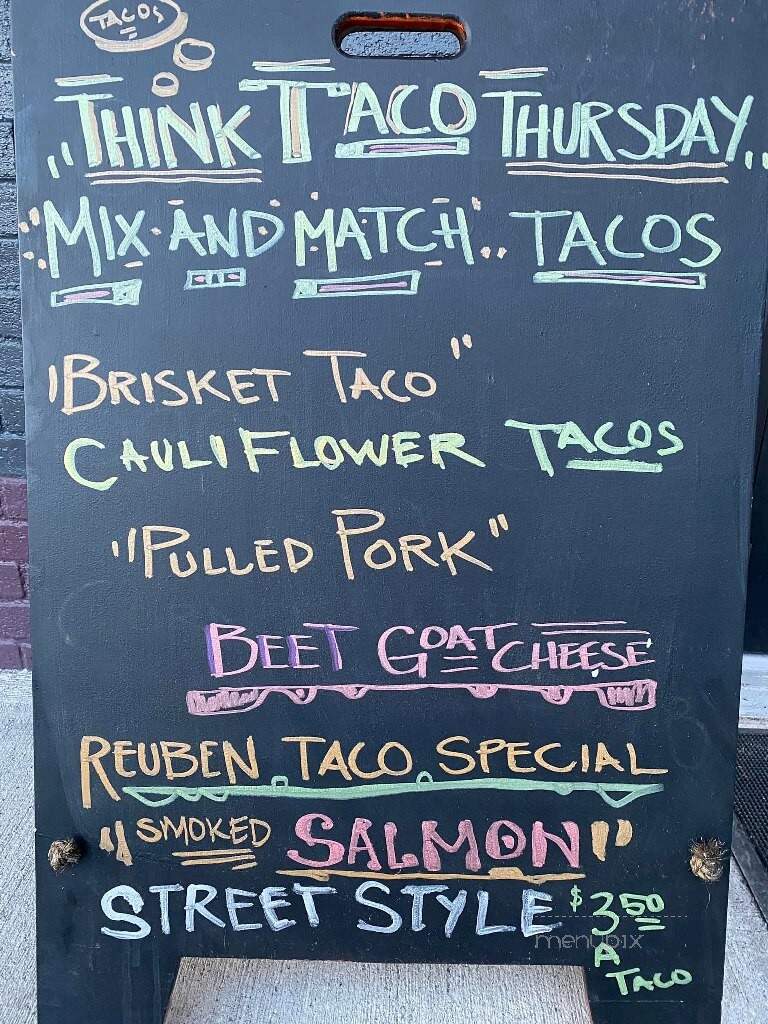 TACOS
"THINK TACO THURSDAY"
"MIX AND MATCH" TACOS
"BRISKET TACO"
CAULIFLOWER TACOS
"PULLED PORK"
BEET GOAT CHEESE
REUBEN TACO SPECIAL
"SMOKED SALMON"
STREET STYLE $3.50
A
TACO
menupix